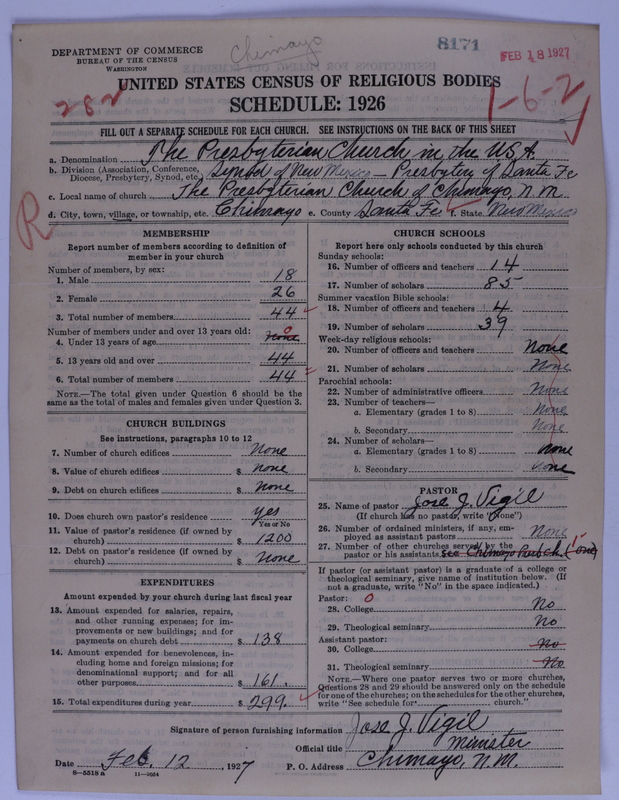 DEPARTMENT OF COMMERCE
BUREAU OF THE CENSUS
WASHINGTON
Chimayo
8171
FEB 18 1927
UNITED STATES CENSUS OF RELIGIOUS BODIES
SCHEDULE: 1926
282
1-6-2
FILL OUT A SEPARATE SCHEDULE FOR EACH CHURCH. SEE INSTRUCTIONS ON THE BACK OF THIS SHEET
a. Denomination The Presbyterian Church in the U.S.A.
b. Division (Association, Conference, Diocese, Presbytery, Synod, etc.) Synod of New Mexico — Presbytery of Santa Fe
c. Local name of church The Presbyterian Church of Chimayo, N.M.
d. City, town, village, or township, etc. Chimayo e. County Santa Fe f. State New Mexico
R
MEMBERSHIP
Report number of members according to definition of
member in your church
Number of members, by sex:
1. Male 18
2. Female 26
3. Total number of members 44
Number of members under and over 13 years old:
4. Under 13 years of age none 0
5. 13 years old and over 44
6. Total number of members 44
NOTE.—The total given under Question 6 should be
same as the total of males and females given under Question 3.
CHURCH BUILDINGS
See instructions, paragraphs 10 to 12
7. Number of church edifices None
8. Value of church edifices $ none
9. Debt on church edifices $ None
10. Does church own pastor's residence yes
Yes or No
11. Value of pastor's residence (if owned by
church) $ 1200
12. Debt on pastor's residence (if owned by
church) $ None
EXPENDITURES
Amount expended by your church during last fiscal year
13. Amount expended for salaries, repairs,
and other running expenses; for im-
provements or new buildings; and for
payments on church debt $ 138
14. Amount expended for benevolences, in-
cluding home and foreign missions; for
denominational support; and for all
other purposes $ 161.
15. Total expenditures during year $ 299.
CHURCH SCHOOLS
Report here only schools conducted by this church
Sunday schools:
16. Number of officers and teachers 14
17. Number of scholars 85
Summer vacation Bible schools:
18. Number of officers and teachers 4
19. Number of scholars 39
Week-day religious schools:
20. Number of officers and teachers None
21. Number of scholars None
Parochial schools:
22. Number of administrative officers None
23. Number of teachers—
a. Elementary (grades 1 to 8) None
b. Secondary None
24. Number of scholars—
a. Elementary (grades 1 to 8) none
b. Secondary none
PASTOR
25. Name of pastor Jose J. Vigil
(If church has no pastor, write "None")
26. Number of ordained ministers, if any, em-
ployed as assistant pastors None
27. Number of other churches served by the
pastor or his assistants See Chimayo (one) 1
If pastor (or assistant pastor) is a graduate of a college or
theological seminary, give name of institution below. (If
not a graduate, write "No" in the space indicated.)
Pastor: 0
28. College No
29. Theological seminary No
Assistant pastor:
30. College No
31. Theological seminary No
NOTE.—Where one pastor serves two or more churches,
Questions 28 and 29 should be answered only on the schedule
for one of the churches; on the schedules for the other churches,
write "See schedule for church."
Signature of person furnishing information Jose J. Vigil
Official title Minister
Date Feb. 12, 1927 P. O. Address Chimayo, N.M.
8—5518 a 11—9024